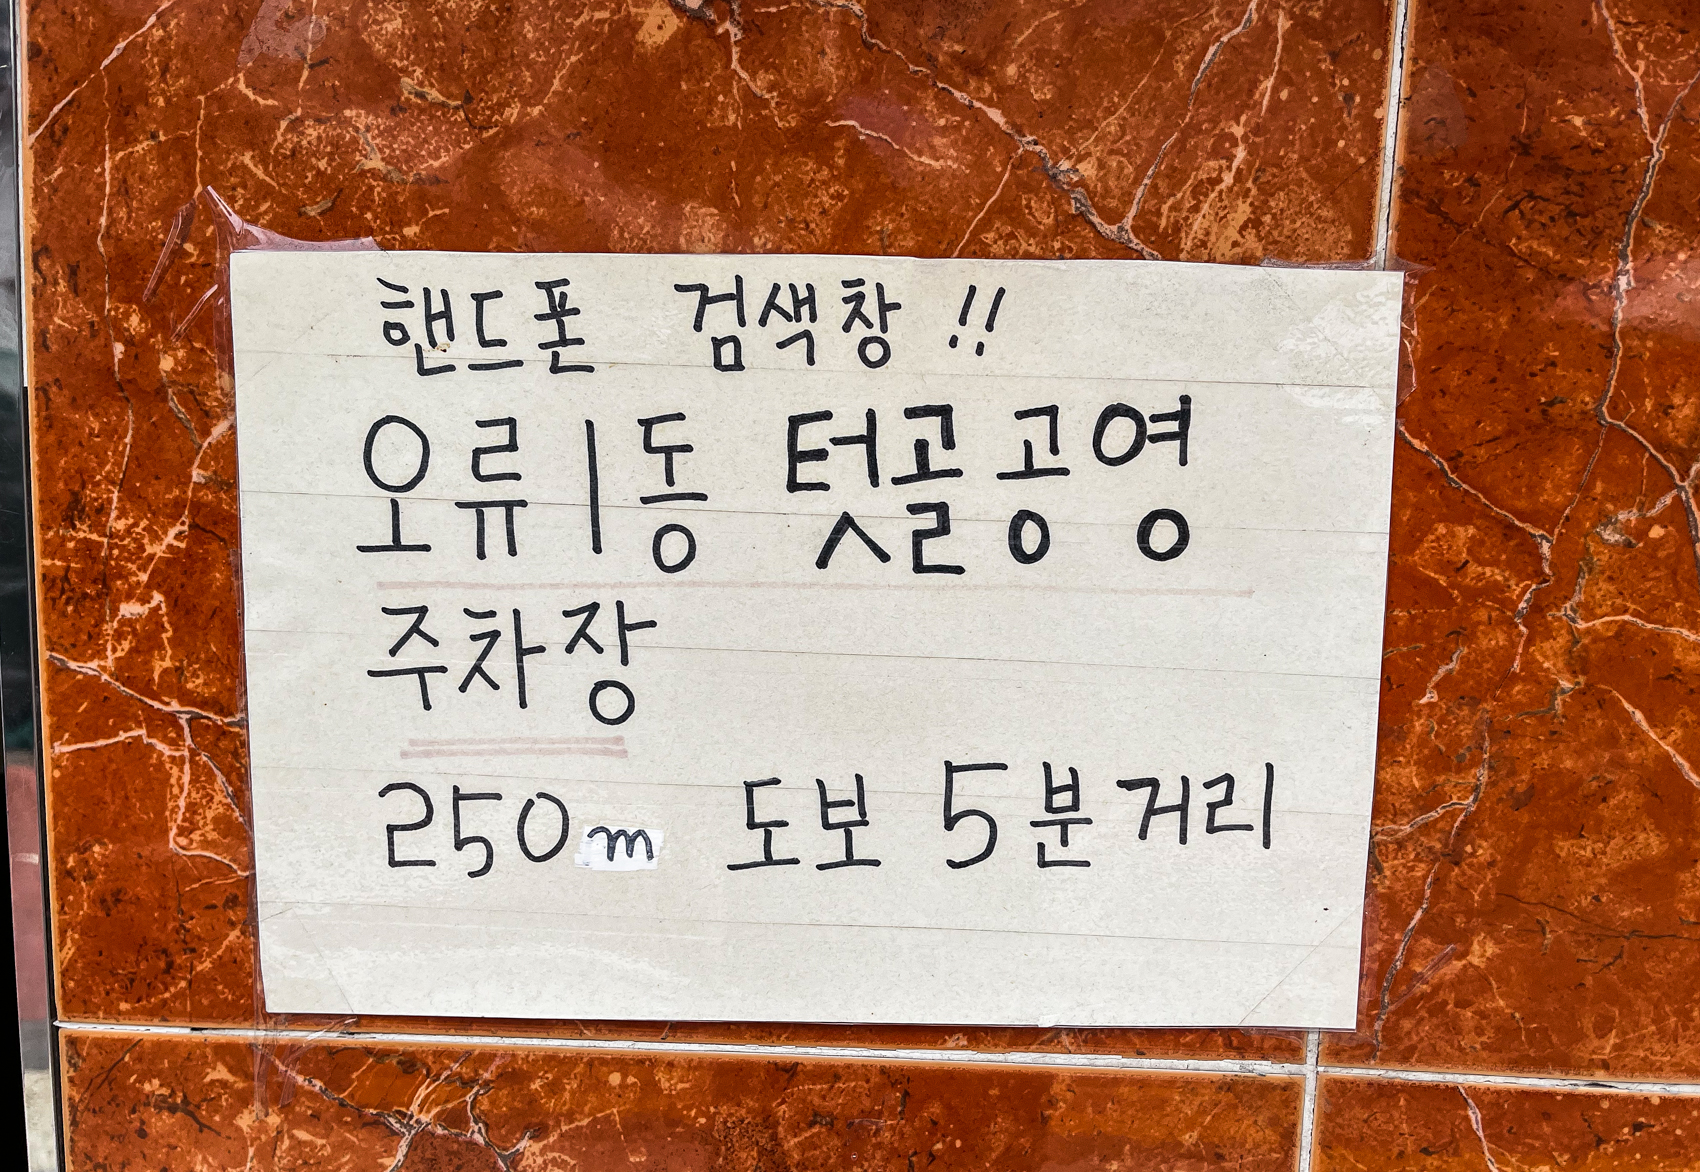 핸드폰 검색창 !!
오류1동 텃골공영
주차장
250m 도보 5분거리